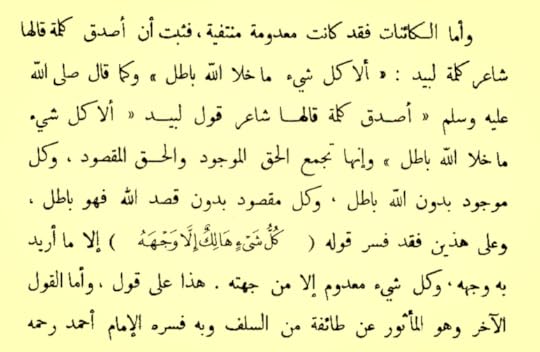 وأما الكائنات فقد كانت معدومة منتفية ، فثبت أن أصدق كلمة قالها
شاعر كلمة لبيد : « ألا كل شيء ما خلا الله باطل » وكما قال صلى الله
عليه وسلم « أصدق كلمة قالها شاعر قول لبيد « ألا كل شيء
ما خلا الله باطل » وإنها تجمع الحق الموجود والحق المقصود ، وكل
موجود بدون الله باطل ، وكل مقصود بدون قصد الله فهو باطل ،
وعلى هذين فقد فسر قوله ( كُلُّ شَيْءٍ هَالِكٌ إِلَّا وَجْهَهُ ) إلا ما أريد
به وجهه ، وكل شيء معدوم إلا من جهته . هذا على قول ، وأما القول
الآخر وهو المأثور عن طائفة من السلف وبه فسره الإمام أحمد رحمه